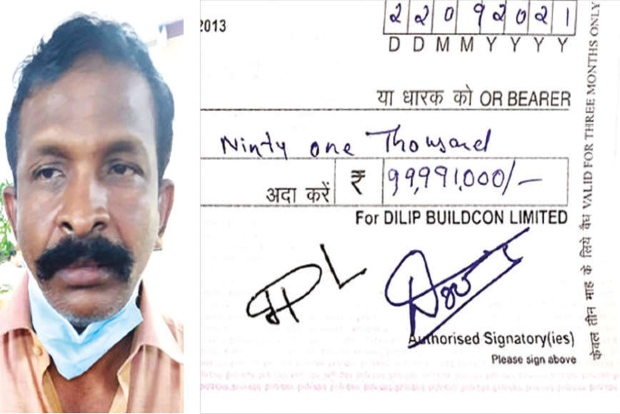 2013
22092021
D D M M Y Y Y Y
या धारक को OR BEARER
Ninty one Thousand
अदा करें ₹ 99,991,000/-
For DILIP BUILDCON LIMITED
Authorised Signatory(ies)
Please sign above
केवल तीन माह के लिये वैध VALID FOR THREE MONTHS ONLY